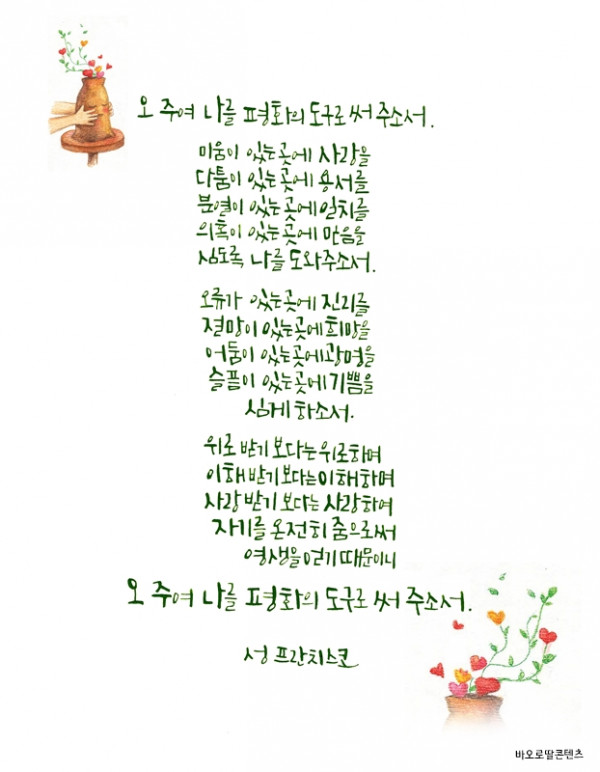 오 주여 나를 평화의 도구로 써 주소서.
미움이 있는 곳에 사랑을
다툼이 있는 곳에 용서를
분열이 있는 곳에 일치를
의혹이 있는 곳에 믿음을
심도록 나를 도와주소서.
오류가 있는 곳에 진리를
절망이 있는 곳에 희망을
어둠이 있는 곳에 광명을
슬픔이 있는 곳에 기쁨을
심게 하소서.
위로 받기 보다는 위로하며
이해 받기 보다는 이해하며
사랑 받기 보다는 사랑하여
자기를 온전히 줌으로써
영생을 얻기 때문이니
오 주여 나를 평화의 도구로 써 주소서.
성 프란치스코
바오로딸콘텐츠